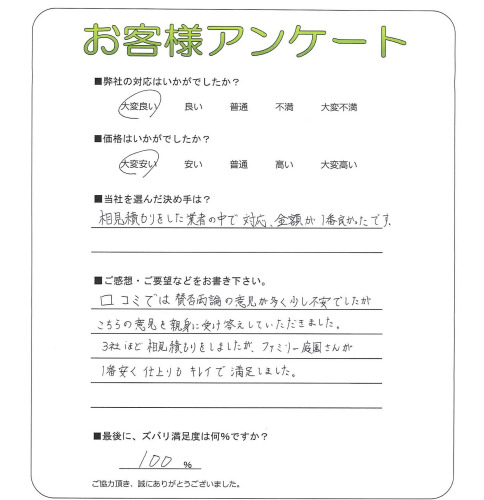 お客様アンケート
■弊社の対応はいかがでしたか？
大変良い 良い 普通 不満 大変不満
■価格はいかがでしたか？
大変安い 安い 普通 高い 大変高い
■当社を選んだ決め手は？
相見積もりをした業者の中で対応、金額が1番良かったです。
■ご感想・ご要望などをお書き下さい。
口コミでは賛否両論の意見が多く少し不安でしたが
こちらの意見を親身に受け答えしていただきました。
3社ほど相見積もりをしましたが、ファミリー庭園さんが
1番安く仕上りもキレイで満足しました。
■最後に、ズバリ満足度は何％ですか？
100 ％
ご協力頂き、誠にありがとうございました。